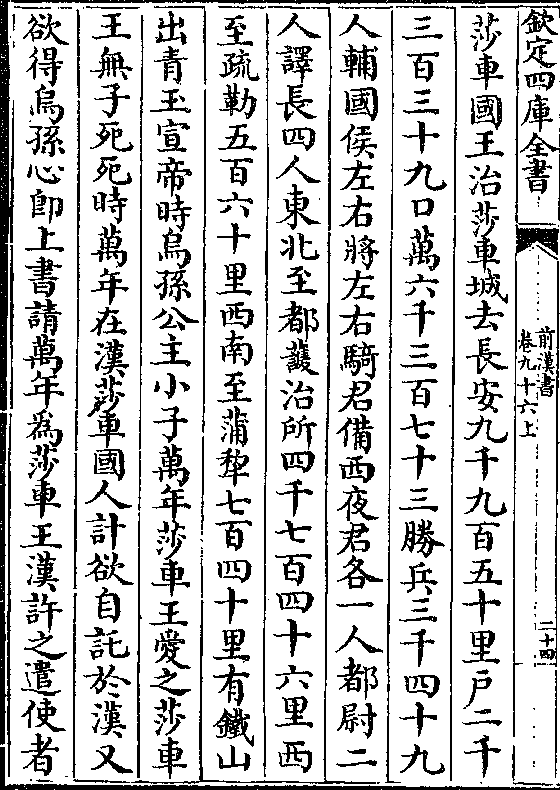 欽定四庫全書
前漢書
卷九十六上
二十四
莎車國王治莎車城去長安九千九百五十里戶二千
三百三十九口萬六千三百七十三勝兵三千四十九
人輔國侯左右將左右騎君備西夜君各一人都尉二
人譯長四人東北至都䕶治所四千七百四十六里西
至疏勒五百六十里西南至蒲犂七百四十里有鐵山
出青玉宣帝時烏孫公主小子萬年莎車王愛之莎車
王無子死死時萬年在漢莎車國人計欲自託於漢又
欲得烏孫心即上書請萬年為莎車王漢許之遣使者